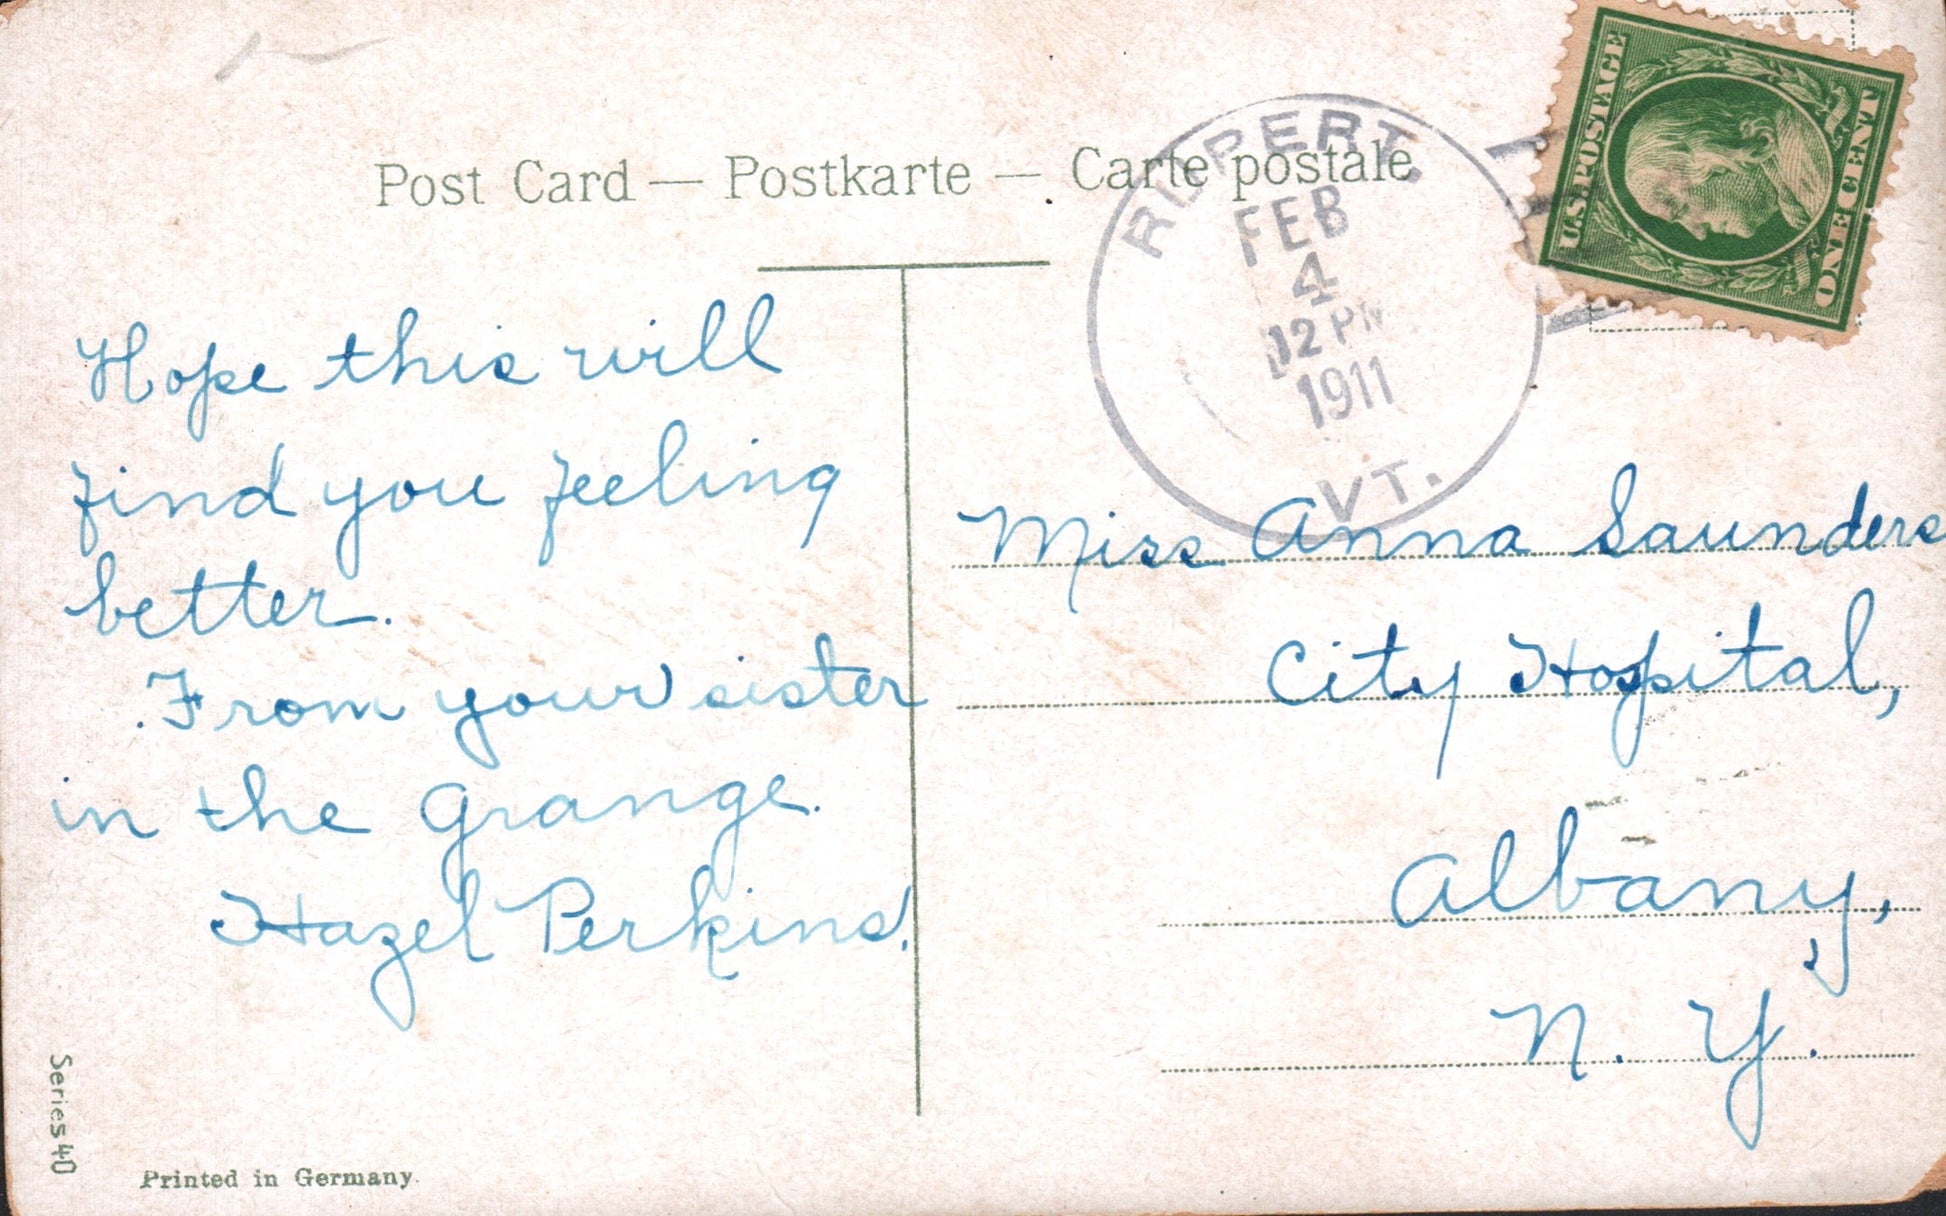 Post Card — Postkarte — Carte postale
RUPERT.
FEB
4
12 PM
1911
VT.
U.S. POSTAGE
ONE CENT
Hope this will
find you feeling
better.
From your sister
in the Grange.
Hazel Perkins.
Miss Anna Saunders
City Hospital,
Albany,
N. Y.
Series 40
Printed in Germany.